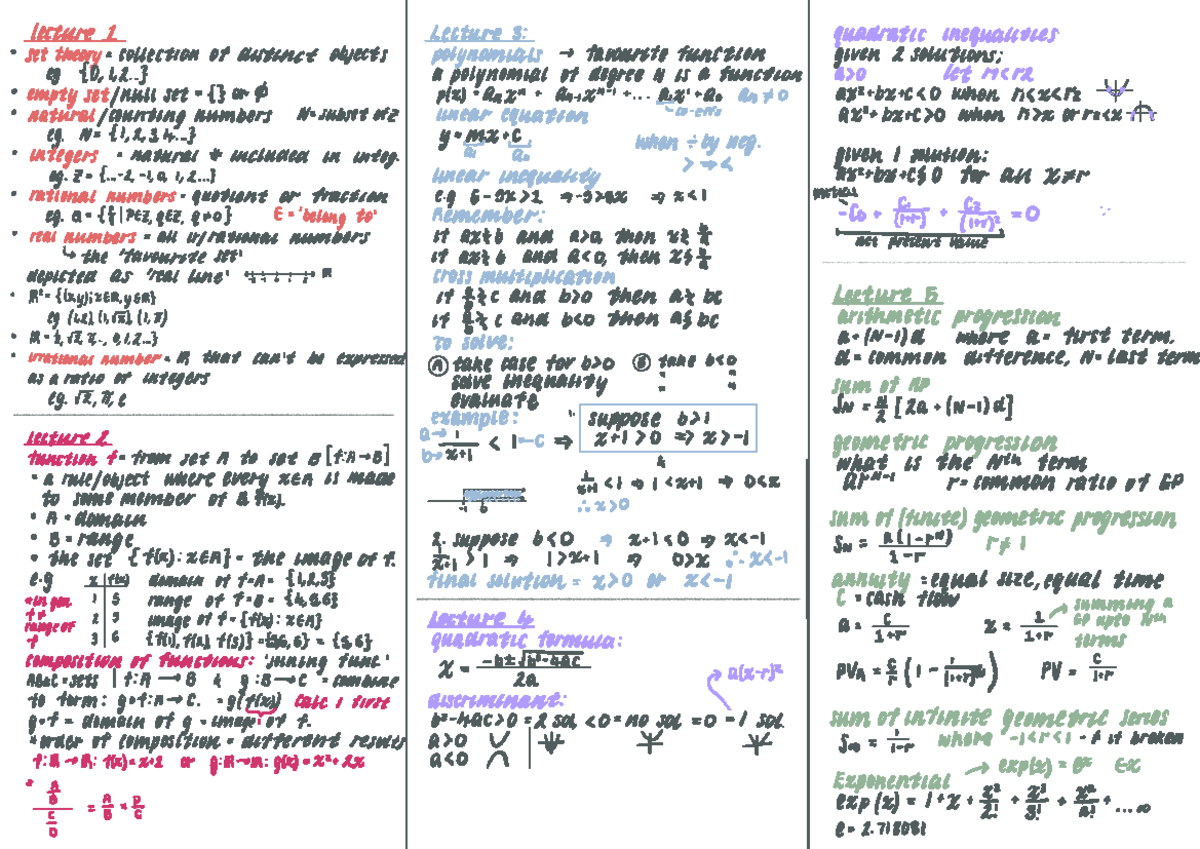 lecture 1
• set theory = collection of distinct objects
eg {0, 1, 2..}
• empty set/null set = {} or ∅
• natural/counting numbers N = subset of Z
eg. N = {1, 2, 3, 4...}
• integers = natural # included in integ.
eg. Z = {...-2, -1, 0, 1, 2...}
• rational numbers = quotient or fraction
eg. Q = {p/q | P∈Z, q∈Z, q≠0} ∈ = 'belong to'
• real numbers = all ir/rational numbers
↳ the 'favourite set'
depicted as 'real line' R
• R² = {(x,y); x∈R, y∈R}
eg (1,2), (1,√2), (1, π)
• irrational number = R that can't be expressed
as a ratio of integers
eg. √2, π, e
lecture 2
function f = from set A to set B [f: A→B]
• a rule/object where every x∈A is made
to some member of B f(x).
• A = domain
• B = range
• the set {f(x) : x∈A} = the image of f.
e.g x f(x) domain of f = A = {1,2,3}
1 5 range of f = B = {4,5,6}
2 5 image of f = {f(x) : x∈A}
3 6 {f(1), f(2), f(3)} = {5,5,6} = {5,6}
* in gen
f ≠
range of
f
composition of functions: 'joining func'
ABC = sets | f: A → B & g: B → C = combine
to form: g∘f: A → C. = g(f(x)) calc 1 first
g∘f = domain of g = image of f.
* order of composition = different results
f: R → R: f(x) = x+2 or g: R → R: g(x) = x² + 2x
* (A/B)/(C/D) = A/B × D/C
Lecture 3:
polynomials → favourite function
a polynomial of degree N is a function
p(x) = aₙxⁿ + aₙ₋₁xⁿ⁻¹ + ... a₁x¹ + a₀ aₙ ≠ 0
co-effs
linear equation
y = mx + c
a₁ a₀
when ÷ by neg.
> → <
linear inequality
e.g 6 - 3x > 2
Remember:
if ax ≥ b and a>0, then x ≥ b/a
if ax ≥ b and a<0, then x ≤ b/a
cross multiplication
if a/b ≥ c and b>0 then a ≥ bc
if a/b ≥ c and b<0 then a ≤ bc
to solve:
Ⓐ take case for b>0 Ⓑ take b<0
solve inequality " "
evaluate
example:
a→ 1
b→ x+1 < 1 ←c ⇒
1. suppose b>1
x+1 > 0 ⇒ x > -1
1/(x+1) < 1 ⇒ 1 < x+1 ⇒ 0 < x
∴ x > 0
-1 0
2. suppose b<0 ⇒ x+1 < 0 ⇒ x < -1
1/(x+1) > 1 ⇒ 1 > x+1 ⇒ 0 > x ∴ x < -1
final solution = x > 0 or x < -1
Lecture 4
quadratic formula:
x = (-b ± √(b² - 4ac))/2a
a(x-r)²
discriminant:
b² - 4ac > 0 = 2 sol < 0 = no sol = 0 = 1 sol
a>0
a<0
quadratic inequalities
given 2 solutions;
a>0 let r1 < r2
ax² + bx + c < 0 when r₁ < x < r₂
ax² + bx + c > 0 when r₁ > x or r₂ < x
given 1 solution:
ax² + bx + c ≶ 0 for all x ≠ r
-C₀ + C₁/(1+r) + C₂/(1+r)² = 0
net present value
Lecture 5
arithmetic progression
a + (N-1)d where a = first term.
d = common difference, N = last term
sum of AP
Sₙ = N/2 [2a + (N-1)d]
geometric progression
what is the Nth term
arᴺ⁻¹ r = common ratio of GP
sum of (finite) geometric progression
Sₙ = a(1-rⁿ)/(1-r) r ≠ 1
annuity = equal size, equal time
C = cash flow
a = C/(1+r) x = 1/(1+r)
summing a
GP upto Nth
terms
PVₐ = C/r (1 - 1/(1+r)ᴺ) PV = C/(1+r)
sum of infinite geometric series
S∞ = 1/(1-r) where -1 < r < 1 - f is broken
Exponential → exp(x) = eˣ
exp(x) = 1 + x + x²/2! + x³/3! + xⁿ/n! + ....∞
e = 2.718081